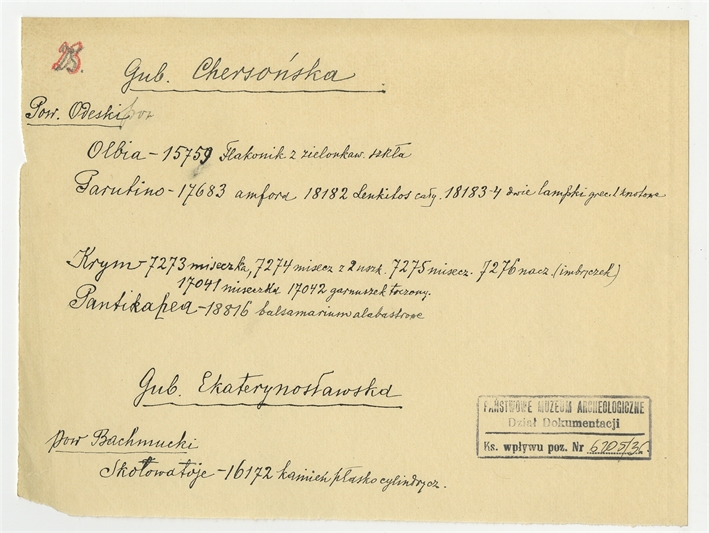 25.
Gub. Chersońska
Pow. Odeski
Olbia – 15759 Flakonik z zielonkaw. szkła
Parutino – 17683 amfora 18182 Lenkitos cały. 18183-4 dwie lampki grec. 1 knotowe
Krym 7273 miseczka, 7274 misecz z 2 uszk. 7275 misecz. 7276 nacz. (imbryczek)
17041 miseczka 17042 garnuszek toczony.
Pantikapea – 18816 balsamarium alabastrowe
Gub. Ekaterynosławska
pow Bachmucki
Skotowatoje – 16172 kamień płasko cylindrycz.
PAŃSTWOWE MUZEUM ARCHEOLOGICZNE
Dział Dokumentacji
Ks. wpływu poz. Nr